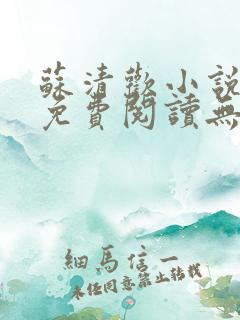 蘇清歡小說
免費閱讀無
細馬信一
未經同意禁止轉載